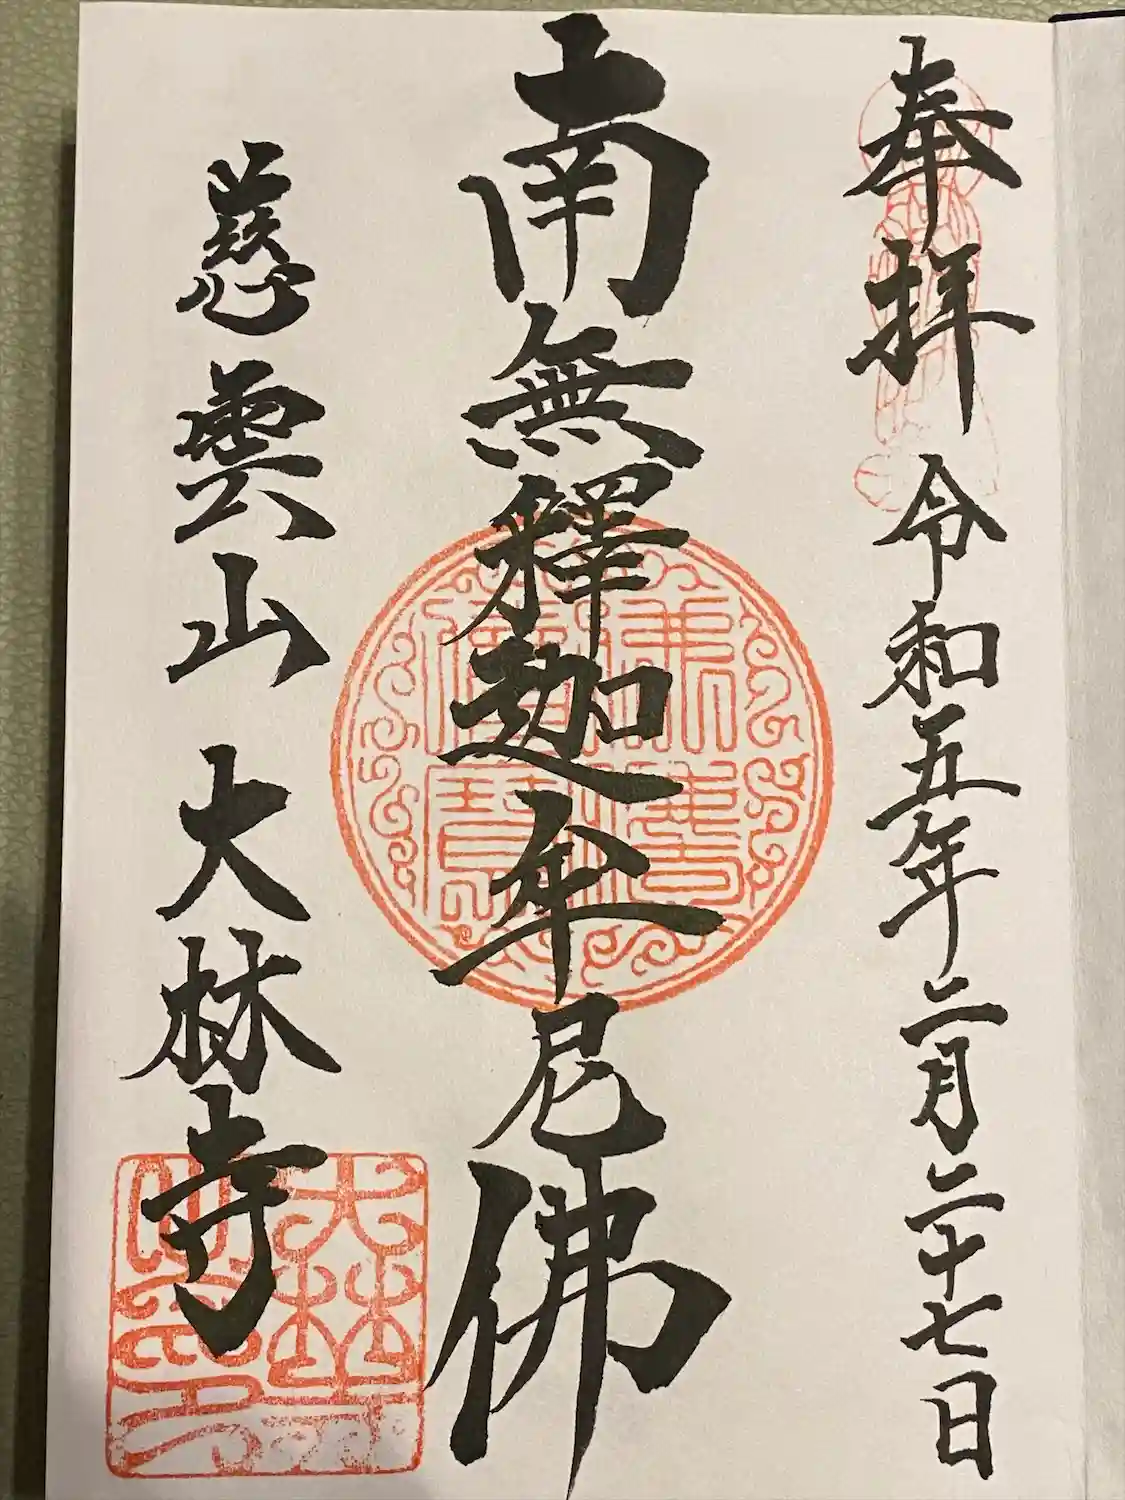 奉拝 令和五年二月二十七日
南無釋迦牟尼佛
慈雲山 大林寺